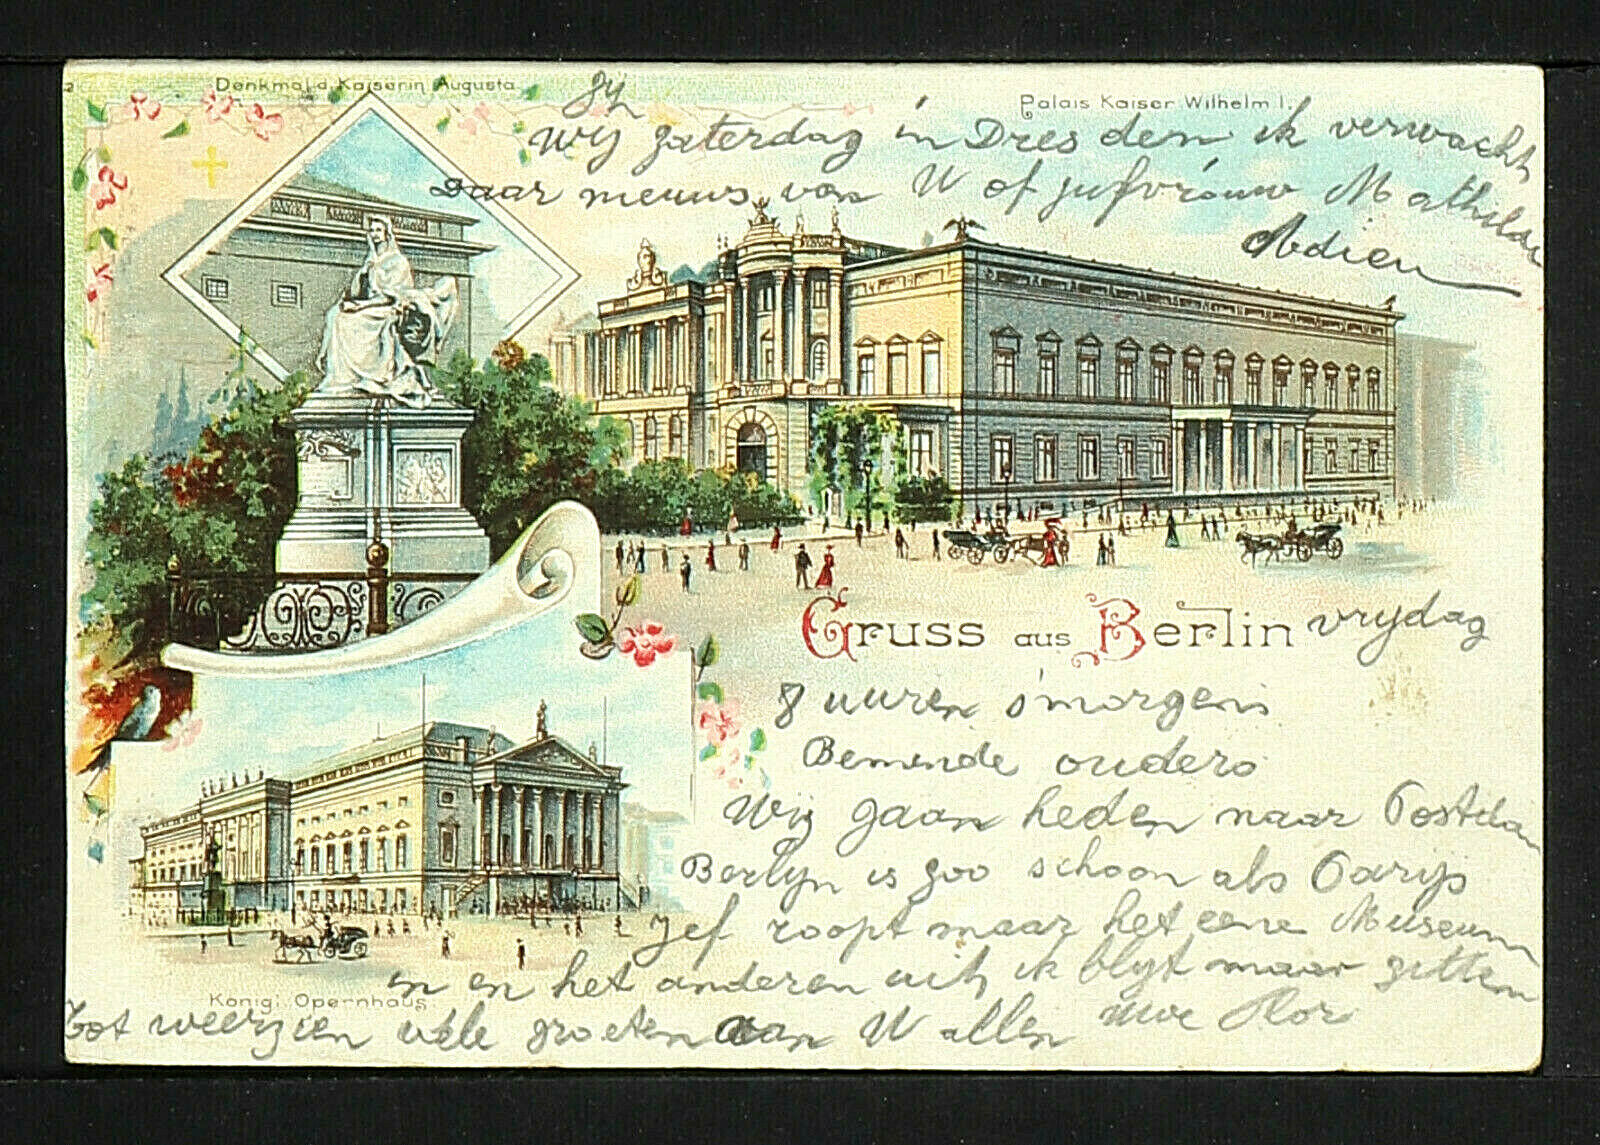 Denkmal d. Kaiserin Augusta
Palais Kaiser Wilhelm I.
zij
Wij zaterdag in Dresden ik verwacht
daar nieuws van U of jufvrouw Mathilde
Adieu
Gruss aus Berlin
vrijdag
8 uuren s'morgens
Beminde ouders
Wij gaan heden naar Postdam
Berlyn is zoo schoon als Parijs
Jef roopt maar het eene Museum
in en het anderen uit, ik blijt maar zitten
Königl. Opernhaus.
Tot weerzien vele groeten aan U allen uwe Flor